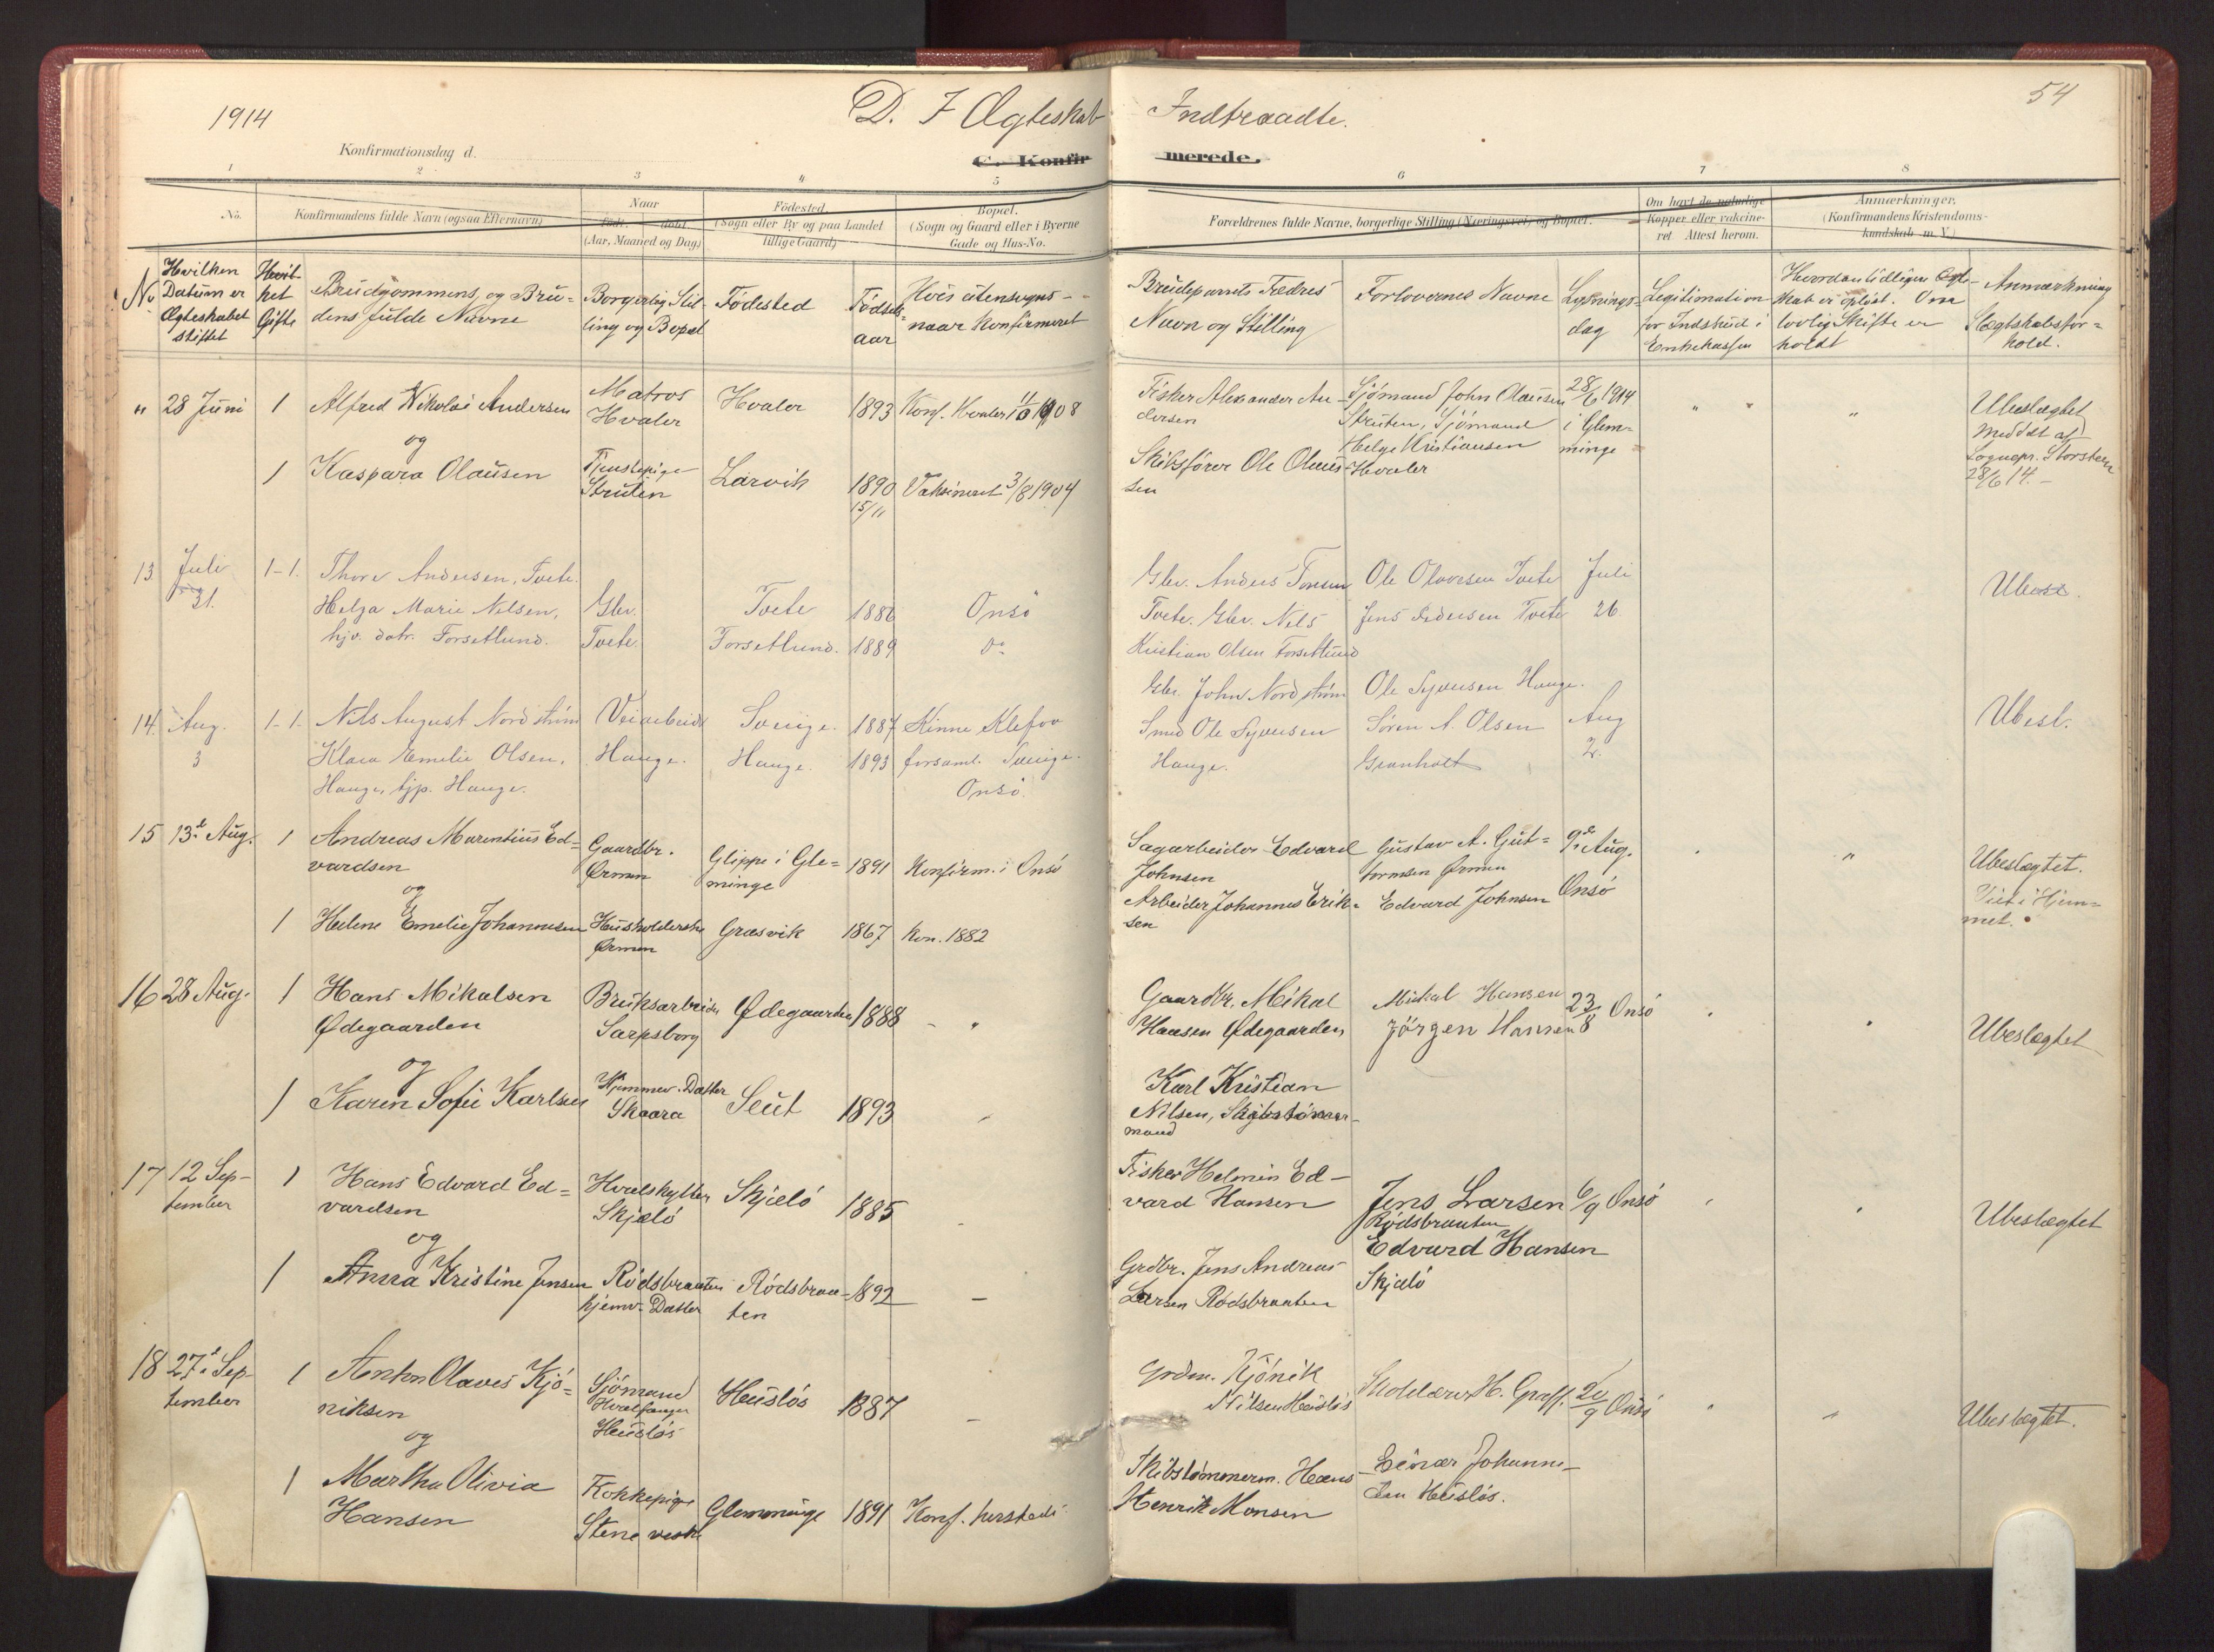 1914
D. I Ægteskab Indtraadte.
54
Konfirmationsdag d.
C. Konfirmerede.
1 2 3 4 5 6 7 8
No.
Konfirmandens fulde Navn (ogsaa Efternavn)
Naar
født. døbt.
(Aar, Maaned og Dag)
Fødested
(Sogn eller By og paa Landet
tillige Gaard)
Bopæl.
(Sogn og Gaard eller i Byerne
Gade og Hus-No.
Forældrenes fulde Navne, borgerlige Stilling (Næringsvei) og Bopæl.
Om havt de naturlige
Kopper eller vakcine-
ret Attest herom.
Anmærkninger.
(Konfirmandens Kristendoms-
kundskab m. V.)
No
Hvilken
Datum er
Ægteskabet
stiftet
Hvil-
ket
Gifte
Brudgommens og Bru-
dens fulde Navne
Borgerlig Stil-
ling og Bopæl
Fødested
Fødsels-
aar
Hvis utensogns -
naar konfirmeret
Brudeparrets Fædres
Navn og Stilling
Forlovernes Navne
Lysnings-
dag
Legitimation
for Indskud i
Enkekassen
Hvordan tidligere Ægte-
skab er opløst. Om
lovlig Skifte er
holdt
Anmærkning
Slægtskabsfor-
hold.
" 28 Juni 1 Alfred Nikolai Andersen
Matros
Hvaler
Hvaler
1893
Konf. Hvaler 11/10 1908
Fisker Alexander An-
dersen
Sjømand John Olausen
Struten, Sjømand
Helge Kristiansen
Hvaler
28/6 1914
i Glem-
minge
Ubeslægtet
Meddelt af
Sognepr. Storsteen
28/6 14. -
og
1 Kaspara Olausen
Tjenstepige
Struten
Larvik
1890
15/11
Vaksineret 3/8 1904
Skibsfører Ole Olaus-
sen
13 Juli
31.
1-1. Thore Andersen, Tvete.
Helga Marie Nilsen,
hjv. datr. Forsetlund.
Gbr.
Tvete.
Tvete 1886 Onsö
Forsetlund. 1889 do
Gbr. Anders Toresen
Tvete. Gbr. Nils
Kristian Olsen Forsetlund
Ole Olavesen Tvete
Jens Pedersen Tvete
Juli
26.
Ubesl.
14. Aug.
3
1-1. Nils August Nordström
Klara Emelie Olsen,
Hauge, tjp. Hauge.
Veiarbeid.
Hauge.
Sverige. 1887
Hauge. 1893
Kinne Klefva
forsaml. Sverige.
Onsö.
Gbr. John Nordström
Smed Ole Syversen
Hauge.
Ole Syversen Hauge.
Søren A. Olsen
Granholt
Aug
2.
Ubesl.
15 13de Aug. 1 Andreas Marentius Ed-
vardsen
Gaardbr.
Ørmen
Glippe i Gle-
minge
1891
Konfirm. i Onsö
Sagarbeider Edvard
Johnsen
Gustav A. Gut-
tormsen Ørmen
9de Aug.
Onsö
"
Ubeslægtet.
Viet i Hjem-
met.
og
1 Helene Emelie Johannesen
Husholderske
Ørmen
Græsvik
1867
Kon. 1882
Arbeider Johannes Erik-
sen
Edvard Johnsen
16 28 Aug. 1 Hans Mikalsen
Ødegaarden
Bruksarbeider
Sarpsborg
Ødegaarden
1888
- "
Gaardbr. Mikal
Hansen Ødegaarden
Mikal Hansen
Jörgen Hansen
23/8 Onsö
Ubeslægtet
og
1 Karen Sofie Karlsen
Hjemmev. Datter
Skaara
Slut
1893
Karl Kristian
Nilsen, Skibstömmer-
mand
17 12 Sep-
tember
1 Hans Edvard Ed-
vardsen
Hvalskytter
Skjælö
Skjelö
1885
Fisker Helmin Ed-
vard Hansen
Jens Larsen
Rödsbraaten
Edvard Hansen
Skjælö
6/9 Onsö
Ubeslægtet
og
1 Anna Kristine Jensen
Rödsbraaten
hjemv. Datter
Rödsbraa-
ten
1892
-
Grdbr. Jens Andreas
Larsen Rödsbraaten
18 27de Sep-
tember
1 Anton Olaves Kjö-
niksen
Sjömand
Hvalfanger
Huslös
Huslös
1887
-
Grdm. Kjönik
Nilsen Huslös
H. Graff.
20/9 Onsö
"
Ubeslægtet.
og
1 Martha Olivia
Hansen
Kokkepige
Stene vestre
Glemminge
1891
Konf. hersteds
Skibstömmerm. Hans
Henrik Monsen
Einar Johanne-
sen Huslös.